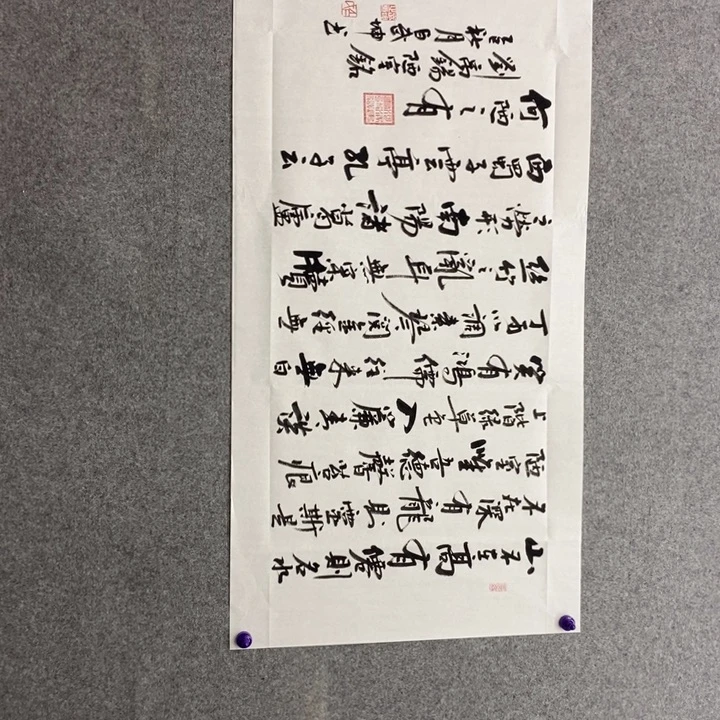 山不在高有僊則名水
不在深有龍則靈斯是
陋室惟吾德馨苔痕
上階綠草色入簾青談
笑有鴻儒往来無白
丁可以調素琴閱金經無
絲竹之亂耳無案牘
之勞形南陽諸葛廬
西蜀子雲亭孔子云
何陋之有
劉禹錫陋室銘
秋月坤书